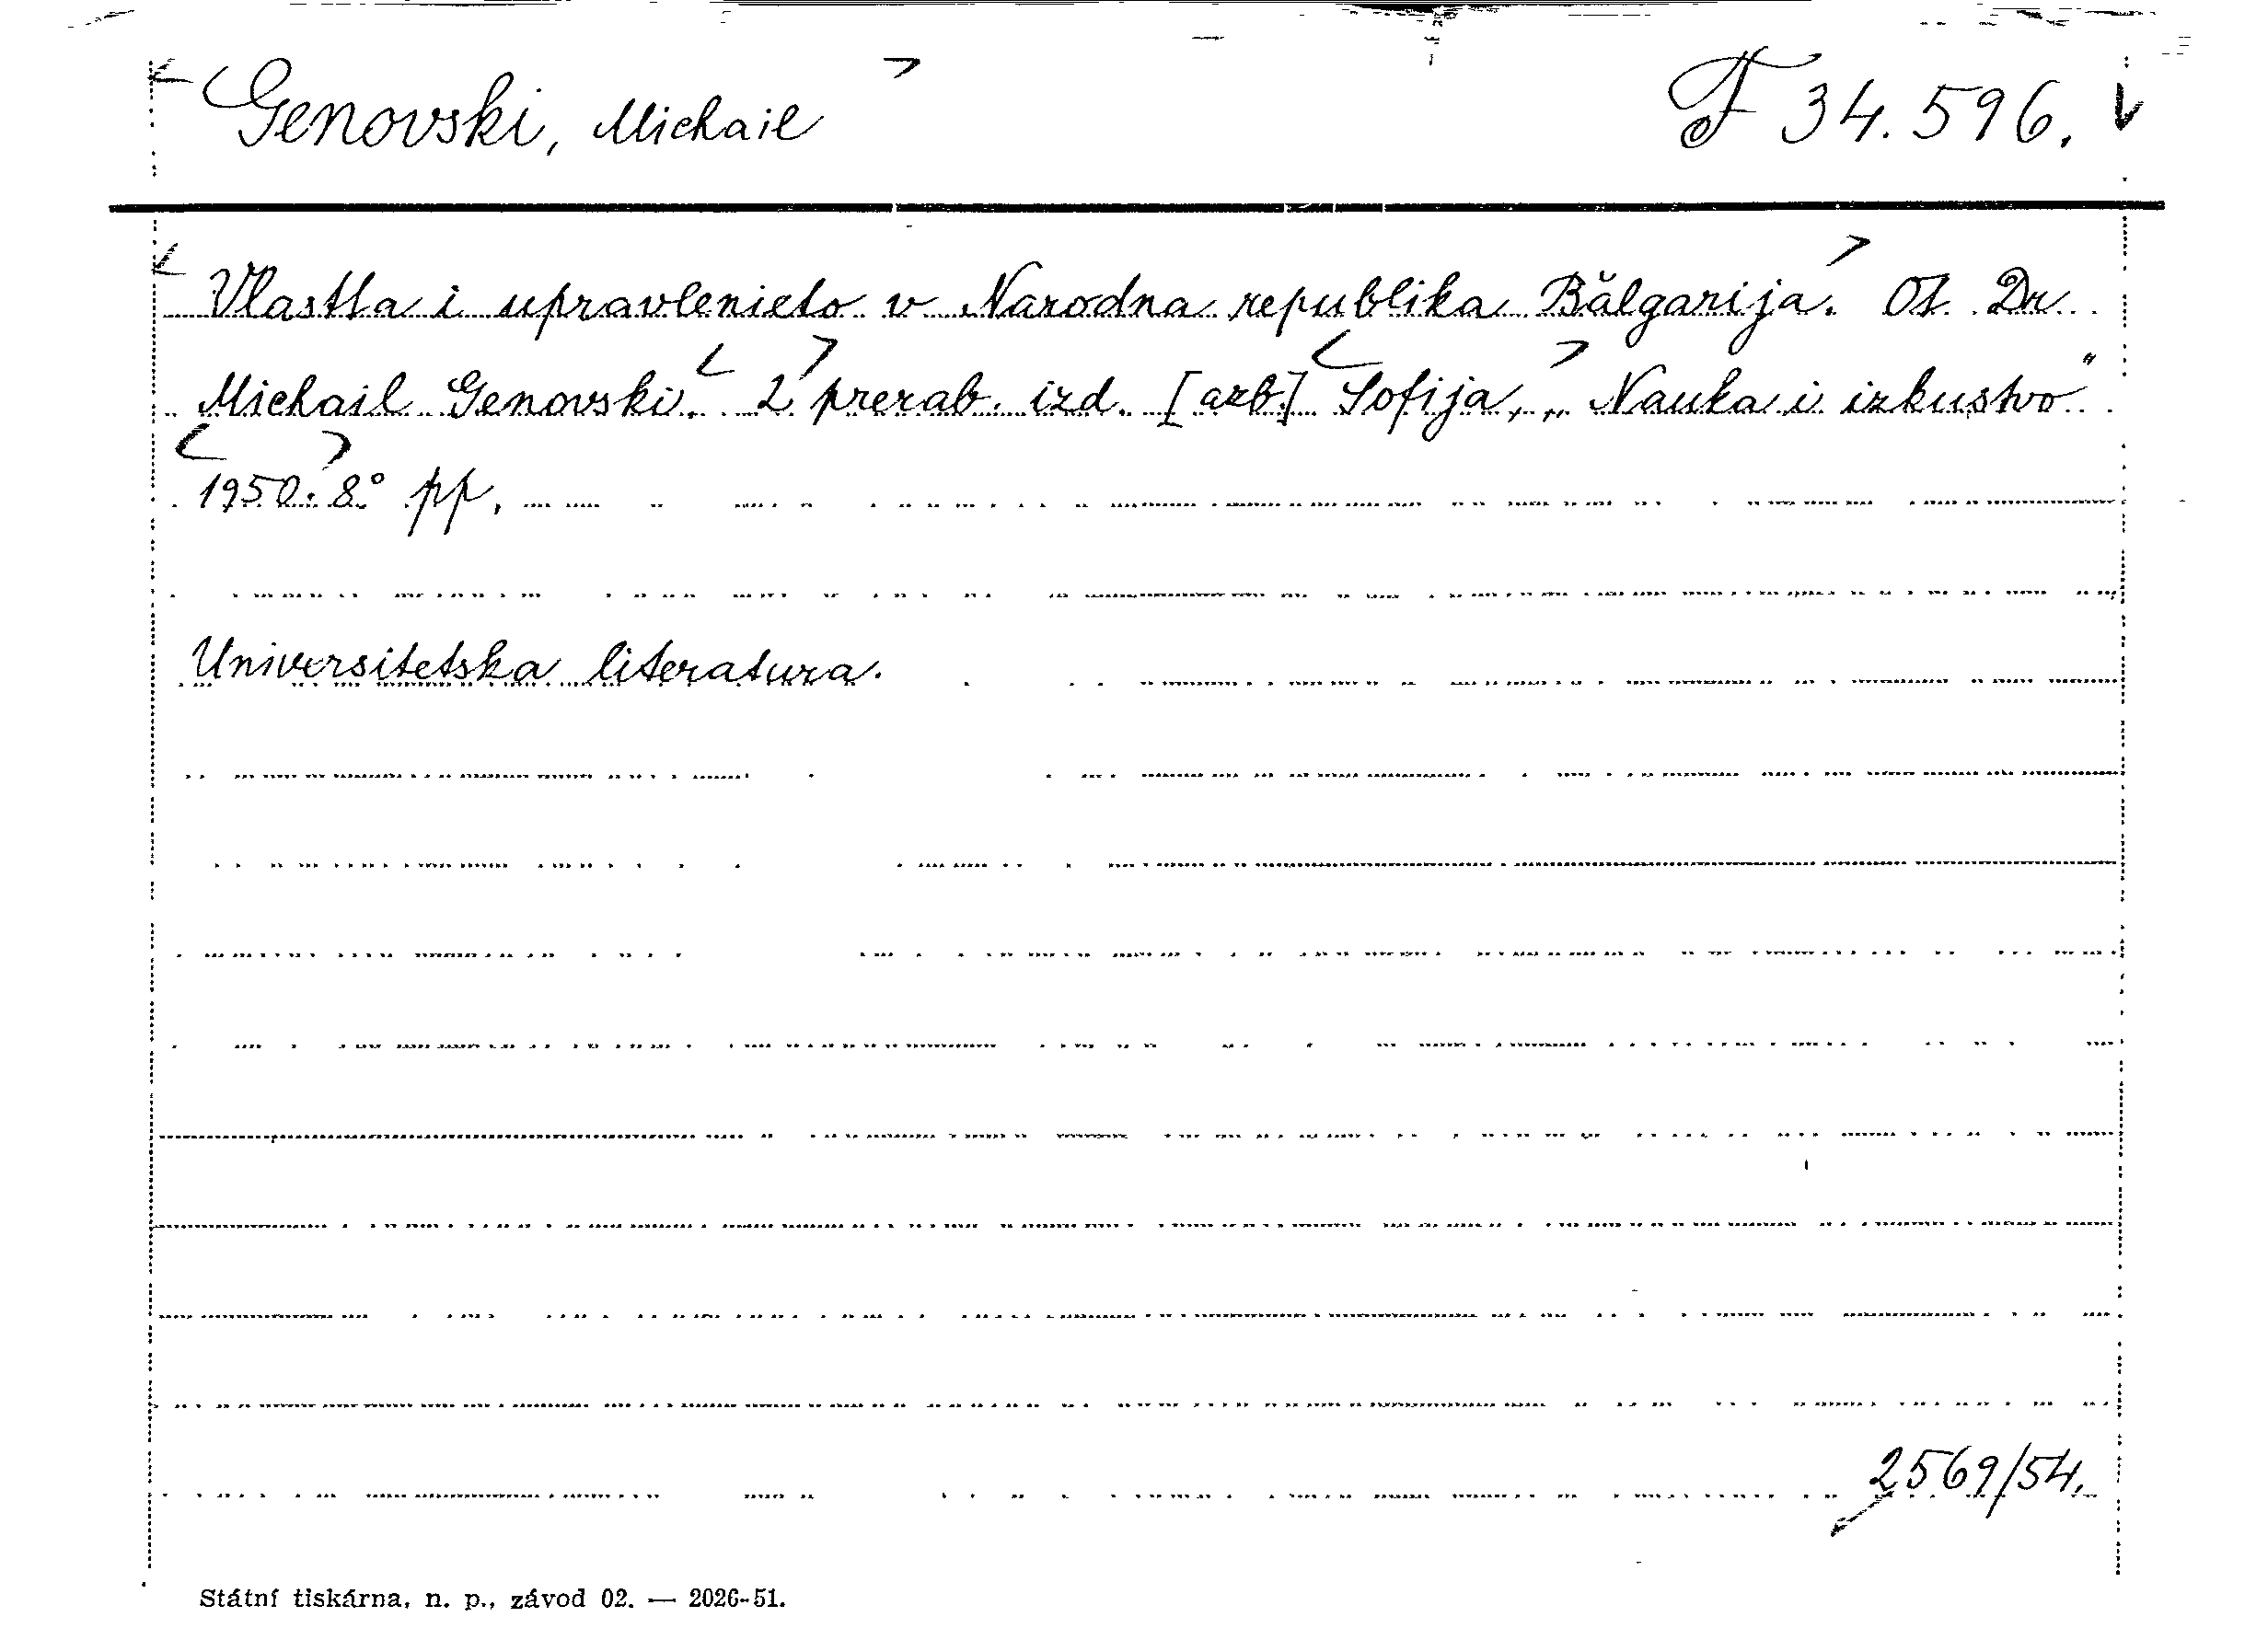 Genovski, Michail
F 34.596.
Vlastta i upravlenieto v Narodna republika Bălgarija. Ot Dr
Michail Genovski. 2 prerab. izd. [azb.] Sofija, „Nauka i izkustvo"
1950. 8° pp.
Universitetska literatura.
2569/54.
Státní tiskárna, n. p., závod 02. — 2026-51.